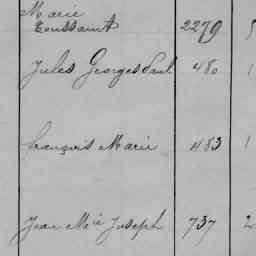 Marie
Toussaint 2279 5
Jules Georges Paul 480 1
François Marie 483 1
Jean Mie Joseph 737 2